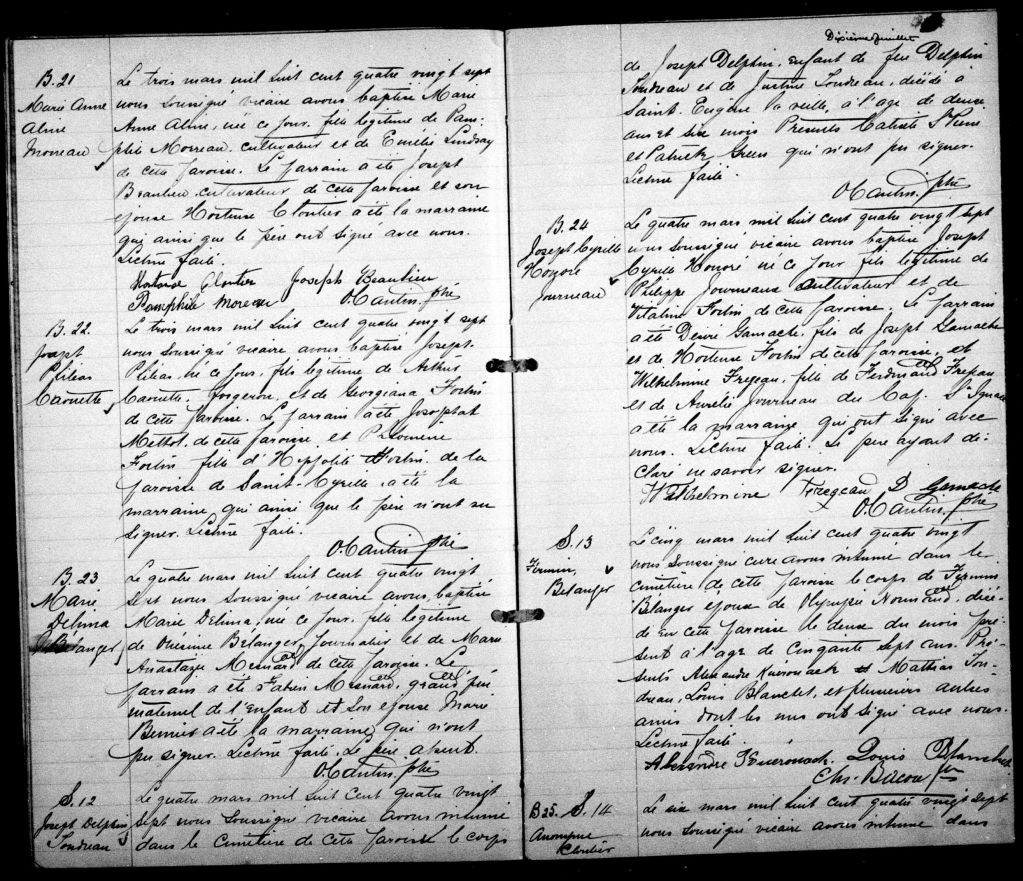 B. 21
Marie Anne
Aline
Moreau
Le trois mars mil huit cent quatre vingt sept
nous soussigné vicaire avons baptisé Marie
Anne Aline, née ce jour, fille légitime de Pam-
phile Moreau cultivateur et de Emélie Lindsay
de cette paroisse. Le parrain a été Joseph
Beaulieu cultivateur de cette paroisse et son
épouse Hortense Cloutier a été la marraine
qui ainsi que le père ont signé avec nous.
Lecture faite.
Hortense Cloutier Joseph Beaulieu
Pamphile Moreau O. Cantin Ptre
B. 22.
Joseph
Philéas
Caouette
Le trois mars mil huit cent quatre vingt sept
nous soussigné vicaire avons baptisé Joseph
Philéas, né ce jour, fils légitime de Arthur
Caouette, forgeron, et de Georgiana Fortin
de cette paroisse. Le parrain a été Josaphat
Méthot, de cette paroisse et Philomène
Fortin fille d'Hippolite Fortin de la
paroisse de Saint-Cyrille, a été la
marraine qui ainsi que le père n'ont su
signer. Lecture faite.
O. Cantin Ptre
B. 23
Marie
Delima
Bélanger
Le quatre mars mil huit cent quatre vingt
sept nous soussigné vicaire avons baptisé
Marie Delima, née ce jour, fille légitime
de Onésime Bélanger, journalier et de Marie
Anastazie Mesnard de cette paroisse. Le
parrain a été Fabien Mesnard, grand père
maternel de l'enfant et son épouse Marie
Bernier a été la marraine, qui n'ont
pu signer. Lecture faite. Le père absent.
O. Cantin Ptre
S. 12
Joseph Delphin
Tondreau
Le quatre mars mil huit cent quatre vingt
sept nous soussigné vicaire avons inhumé
dans le cimetière de cette paroisse le corps
Dixième feuillet
de Joseph Delphin, enfant de feu Delphin
Tondreau et de Justine Tondreau, décédé à
Saint Eugène la veille, à l'age de deux
ans et six mois Présents Calixte St Pierre
et Patrick Green qui n'ont pu signer.
Lecture faite.
O. Cantin Ptre
B. 24
Joseph Cyrille
Honoré
Journeau
Le quatre mars mil huit cent quatre vingt sept
nous soussigné, vicaire avons baptisé Joseph
Cyrille Honoré né ce jour fils légitime de
Philippe Journeau cultivateur et de
Vitaline Fortin de cette paroisse. Le parrain
a été Désiré Gamache, fils de Joseph Gamache
et de Hortense Fortin de cette paroisse, et
Wilhelmine Fregeau, fille de Ferdinand Fregeau
et de Aurelie Journeau du Cap St Ignace
a été la marraine qui ont signé avec
nous. Lecture faite. Le père ayant dé-
claré ne savoir signer.
Wilhelmine Fregeau D. Gamache
O. Cantin Ptre
S. 13
Firmin
Belanger
Le cinq mars mil huit cent quatre vingt
nous soussigné curé avons inhumé dans le
cimetière de cette paroisse le corps de Firmin
Belanger époux de Olympie Normand, décé-
dé en cette paroisse le deux du mois pré-
sent à l'age de cinquante sept ans. Pré-
sents Alexandre Kuérouack et Mathias Ton-
dreau, Louis Blanchet, et plusieurs autres
amis dont les uns ont signé avec nous.
Lecture faite.
Alexandre Kuérouack. Louis Blanchet
Chs. Bacon Ptre
B 25. S. 14
Anonyme
Cloutier
Le six mars mil huit cent quatre vingt sept
nous soussigné vicaire avons inhumé dans